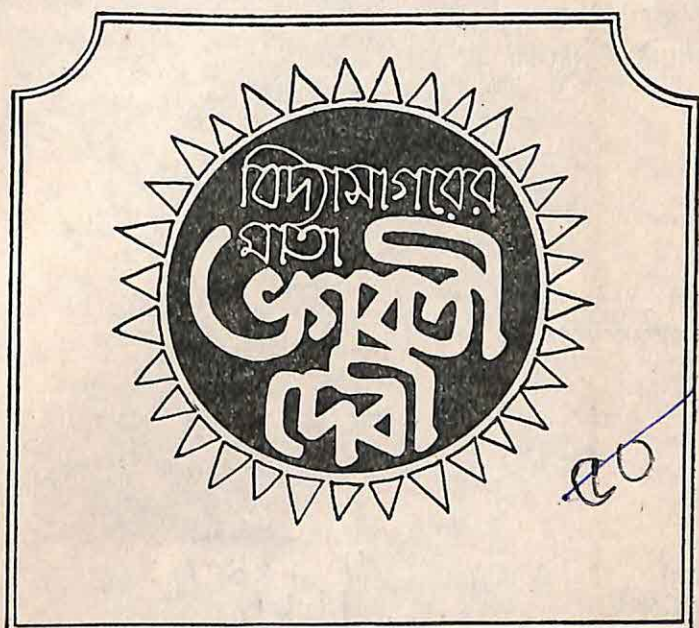 বিদ্যাসাগরের
মাতা
ভগবতী
দেবী
৫০